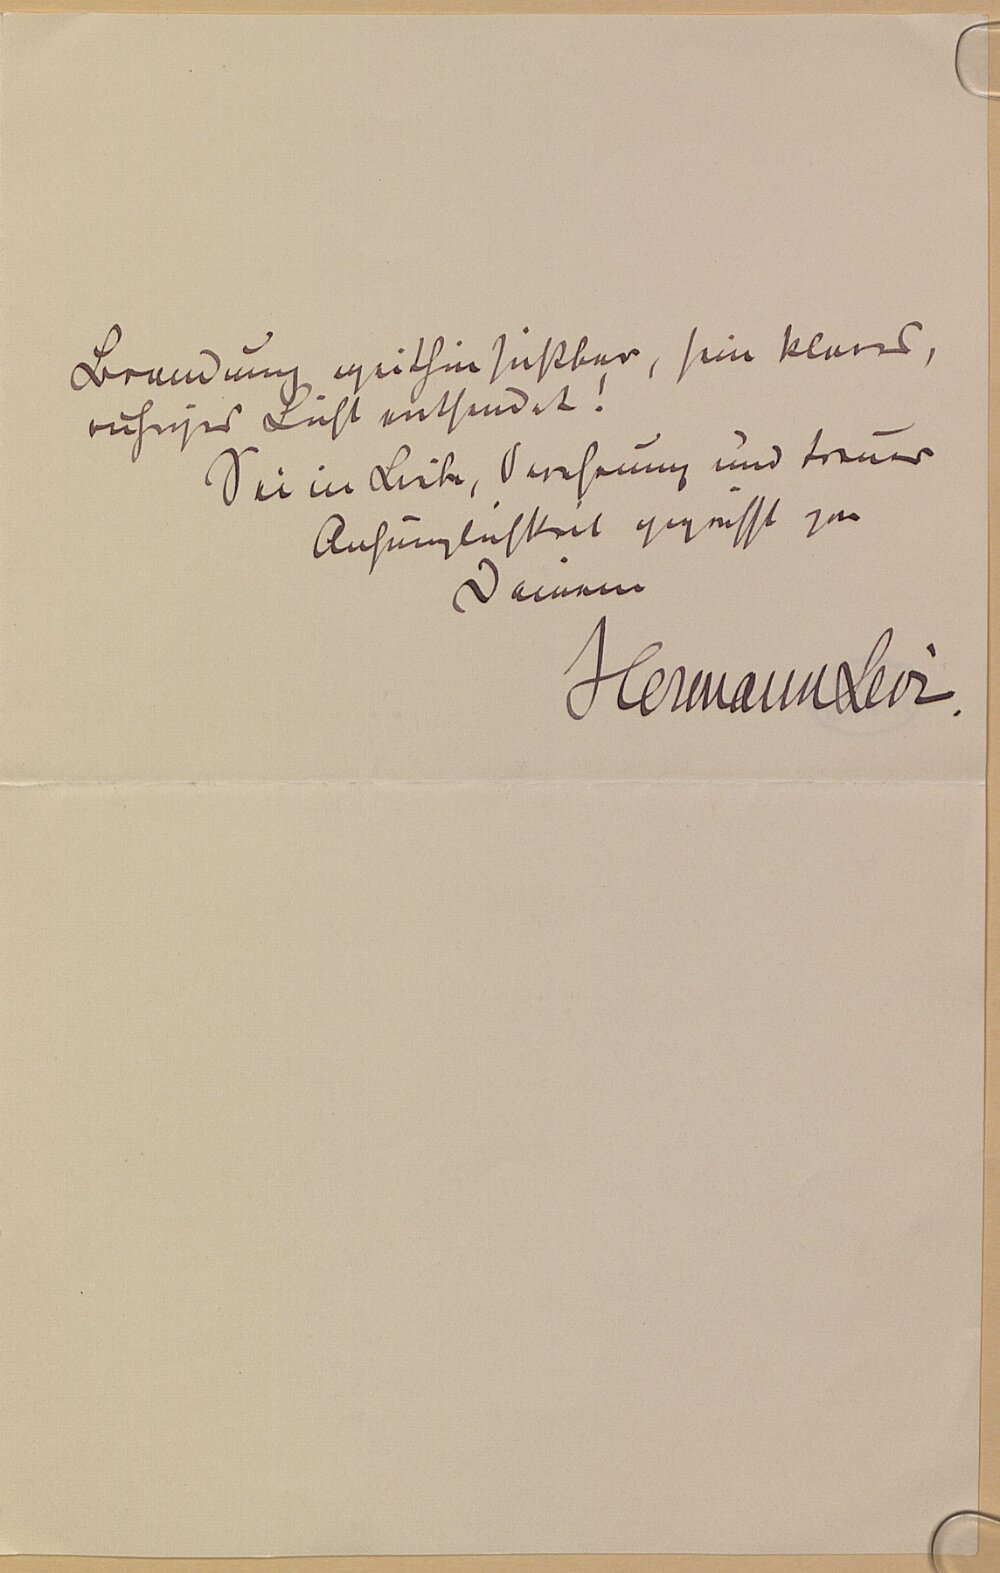 Brandung weithin sichtbar, sein klares,
ruhiges Licht entsendet!
Sei in Liebe, Verehrung und treuer
Anhänglichkeit gegrüsst von
Deinem
Hermann Levi.